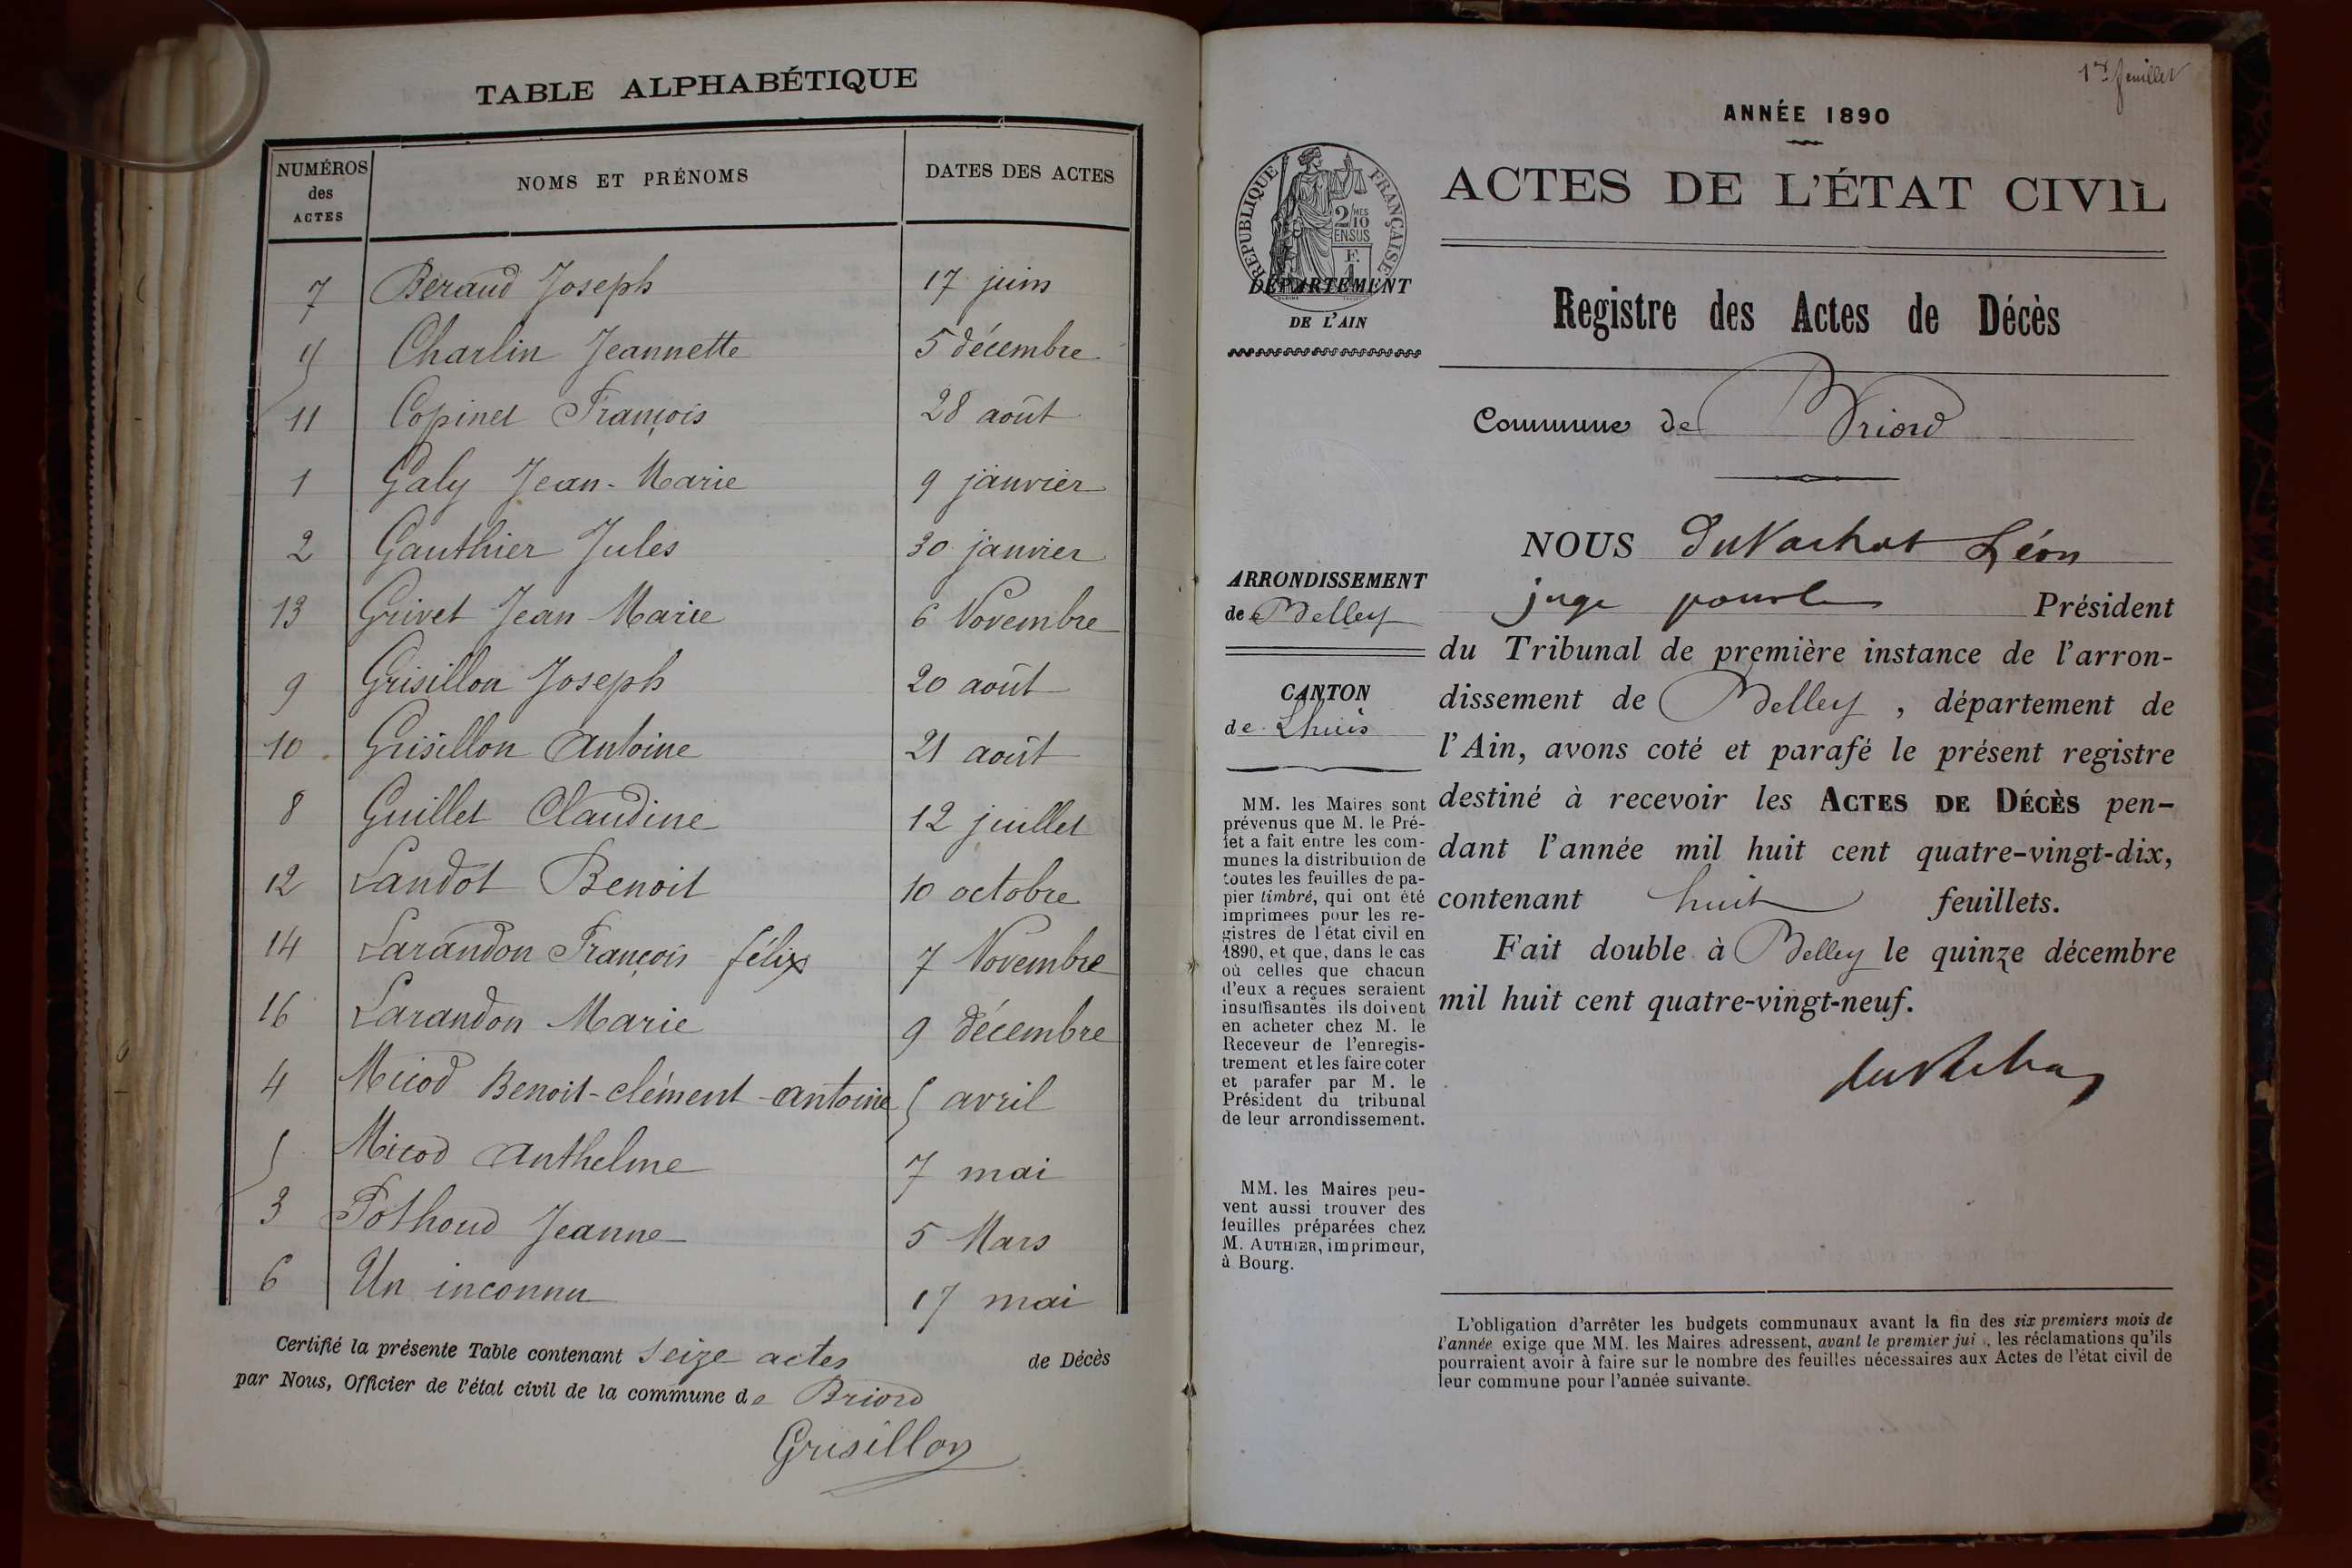 TABLE ALPHABÉTIQUE
NUMÉROS des ACTES NOMS ET PRÉNOMS DATES DES ACTES
7 Béraud Joseph 17 juin
Charlin Jeannette 5 décembre
11 Copinet François 28 août
1 Galy Jean-Marie 9 janvier
2 Gauthier Jules 30 janvier
13 Grivet Jean Marie 6 Novembre
9 Grisillon Joseph 20 août
10 Grisillon Antoine 21 août
8 Guillet Claudine 12 juillet
12 Landot Benoit 10 octobre
14 Larandon François félix 7 Novembre
16 Larandon Marie 9 décembre
4 Micod Benoit-clément-antoine 5 avril
5 Micod Anthelme 7 mai
3 Pothoud Jeanne 5 Mars
6 Un inconnu 17 mai
Certifié la présente Table contenant seize actes de Décès
par Nous, Officier de l'état civil de la commune de Briord
Grisillon
1er feuillet
ANNÉE 1890
RÉPUBLIQUE FRANÇAISE
2/10 MES
EN SUS
F.
1
DÉPARTEMENT
DE L'AIN
ACTES DE L'ÉTAT CIVIL
Registre des Actes de Décès
Commune de Briord
ARRONDISSEMENT
de Belley
CANTON
de Lhuis
MM. les Maires sont
prévenus que M. le Pré-
fet a fait entre les com-
munes la distribution de
toutes les feuilles de pa-
pier timbré, qui ont été
imprimées pour les re-
gistres de l'état civil en
1890, et que, dans le cas
où celles que chacun
d'eux a reçues seraient
insuffisantes ils doivent
en acheter chez M. le
Receveur de l'enregis-
trement et les faire coter
et parafer par M. le
Président du tribunal
de leur arrondissement.
MM. les Maires peu-
vent aussi trouver des
feuilles préparées chez
M. AUTHIER, imprimeur,
à Bourg.
NOUS Léon
juge pour le Président
du Tribunal de première instance de l'arron-
dissement de Belley, département de
l'Ain, avons coté et parafé le présent registre
destiné à recevoir les ACTES DE DÉCÈS pen-
dant l'année mil huit cent quatre-vingt-dix,
contenant huit feuillets.
Fait double à Belley le quinze décembre
mil huit cent quatre-vingt-neuf.
L'obligation d'arrêter les budgets communaux avant la fin des six premiers mois de
l'année exige que MM. les Maires adressent, avant le premier jui, les réclamations qu'ils
pourraient avoir à faire sur le nombre des feuilles nécessaires aux Actes de l'état civil de
leur commune pour l'année suivante.